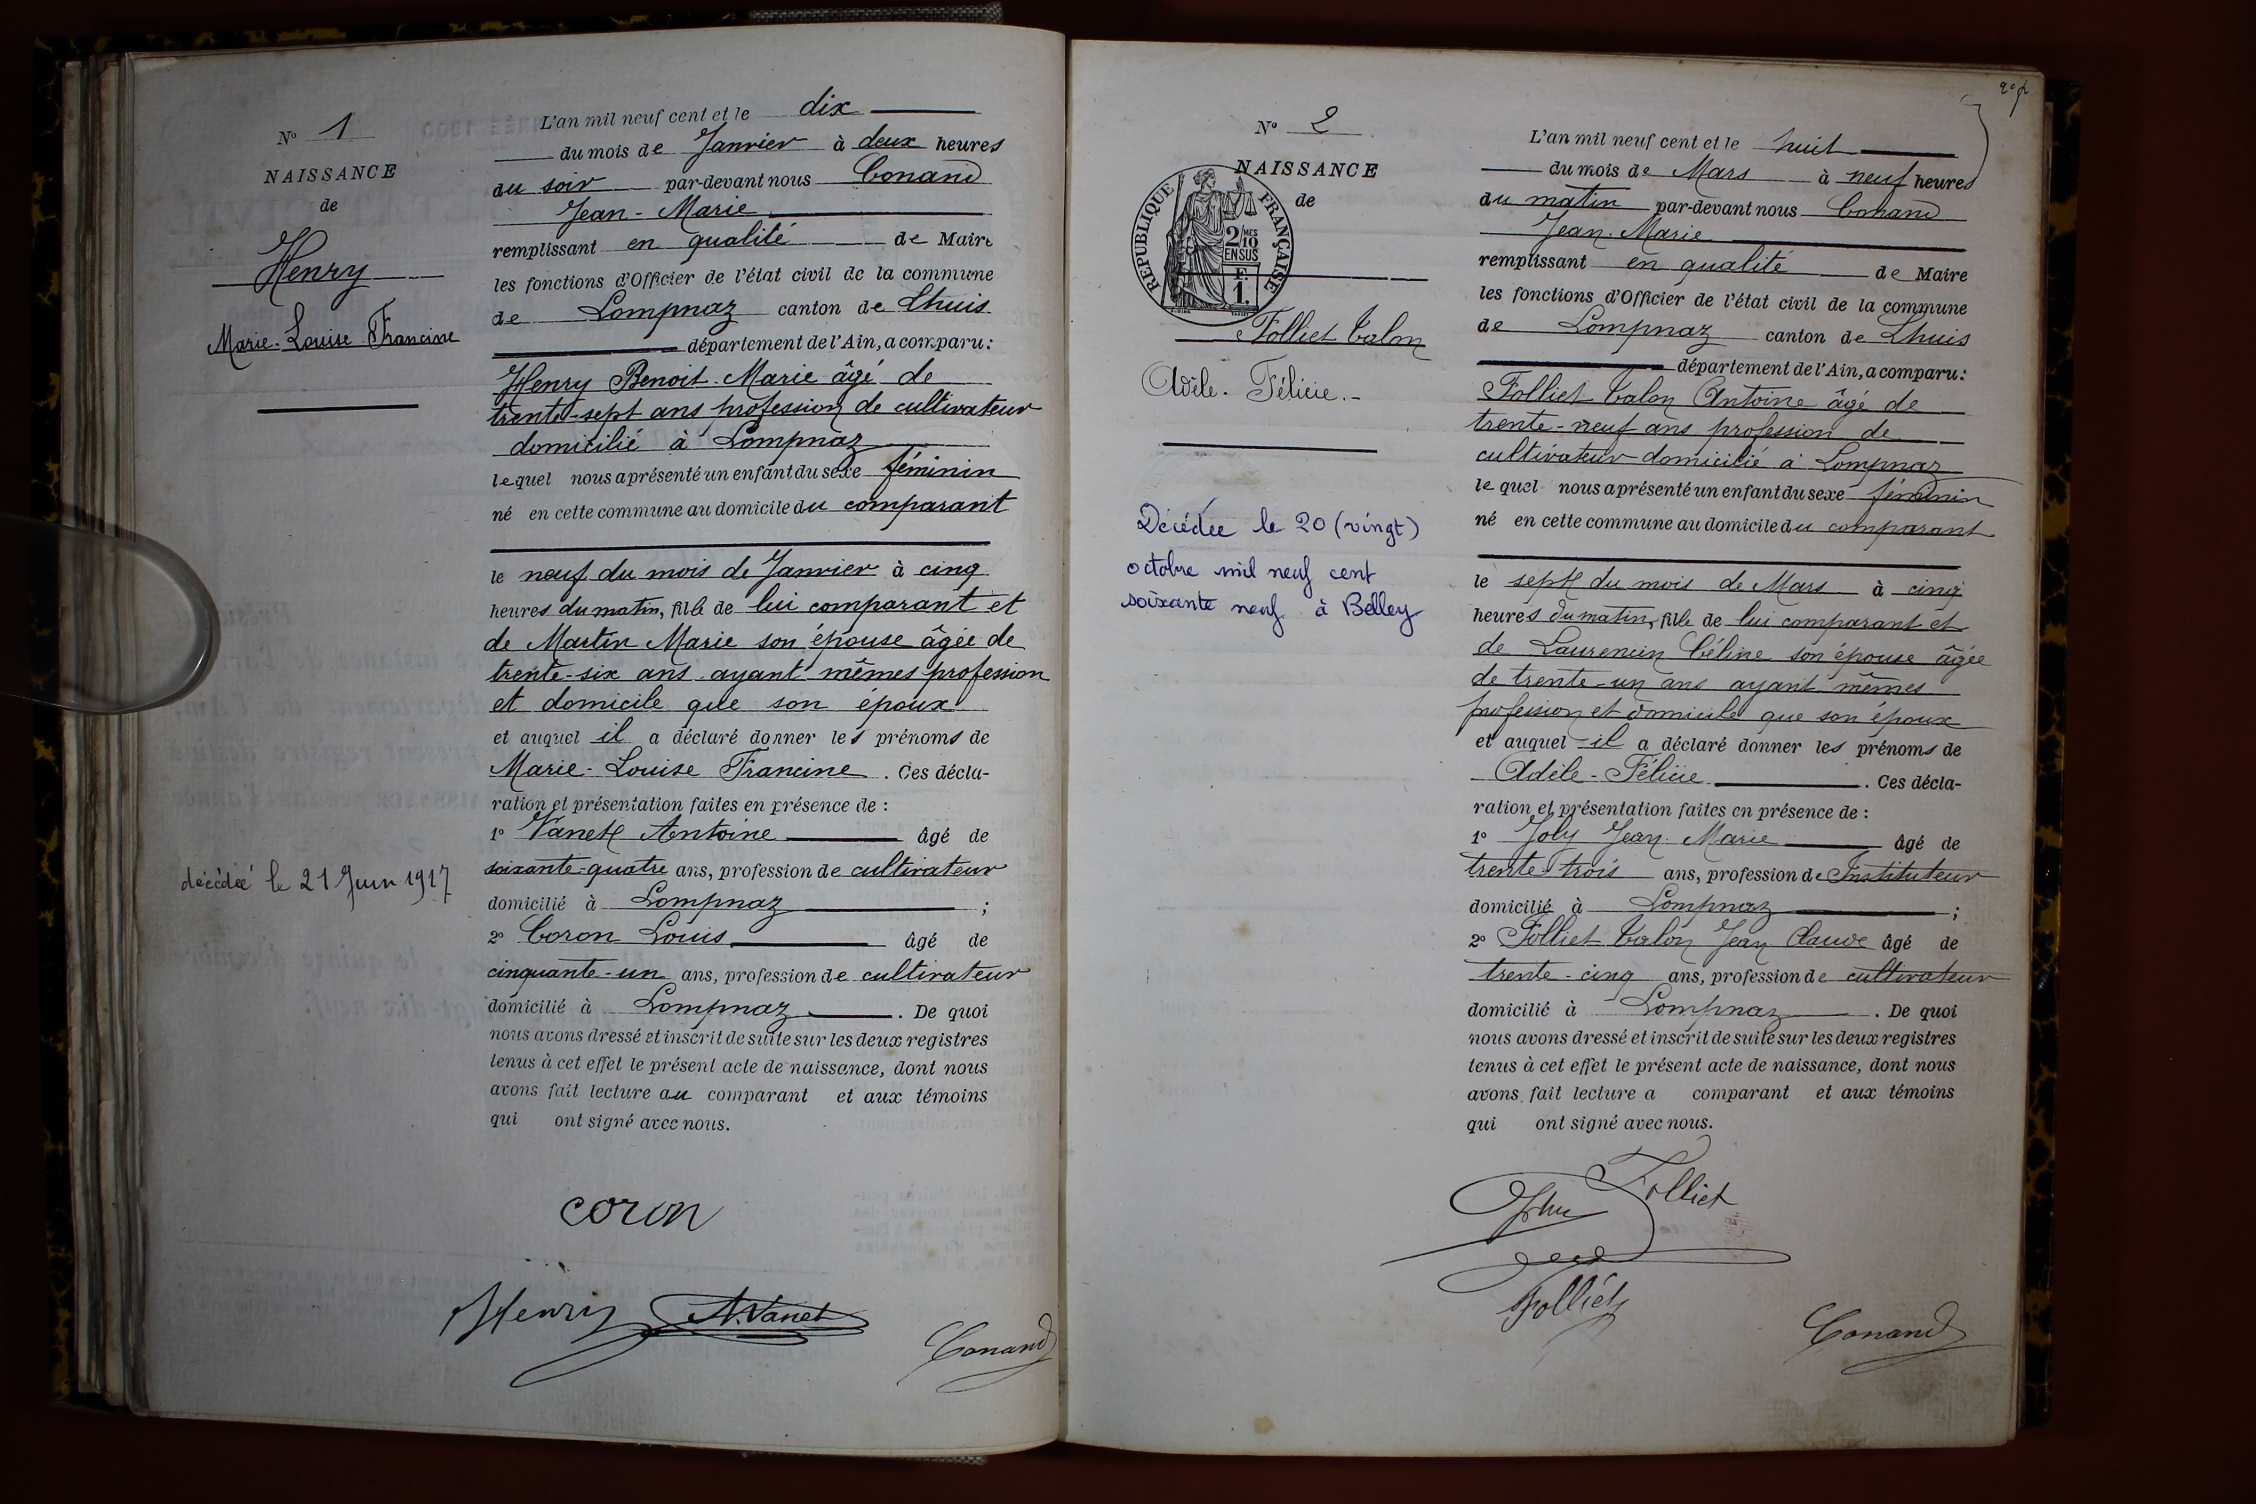 N° 1
NAISSANCE
de
Henry
Marie-Louise Francine
décédée le 21 Juin 1917
L'an mil neuf cent et le dix
du mois de Janvier à deux heures
du soir par-devant nous Conand
Jean-Marie
remplissant en qualité de Maire
les fonctions d'Officier de l'état civil de la commune
de Lompnaz canton de Lhuis
département de l'Ain, a comparu:
Henry Benoit-Marie âgé de
trente-sept ans profession de cultivateur
domicilié à Lompnaz
lequel nous a présenté un enfant du sexe féminin
né en cette commune au domicile du comparant
le neuf du mois de Janvier à cinq
heures du matin, fille de lui comparant et
de Martin Marie son épouse âgée de
trente-six ans ayant mêmes profession
et domicile que son époux
et auquel il a déclaré donner les prénoms de
Marie-Louise Francine. Ces décla-
ration et présentation faites en présence de :
1° Vanet Antoine âgé de
soixante-quatre ans, profession de cultivateur
domicilié à Lompnaz ;
2° Coron Louis âgé de
cinquante-un ans, profession de cultivateur
domicilié à Lompnaz. De quoi
nous avons dressé et inscrit de suite sur les deux registres
tenus à cet effet le présent acte de naissance, dont nous
avons fait lecture au comparant et aux témoins
qui ont signé avec nous.
coron
Henry A. Vanet
Conand
N° 2
NAISSANCE
de
REPUBLIQUE FRANÇAISE
2/10 MES
EN SUS
F.
1.
Folliet Talon
Adèle-Félicie.-
Décédée le 20 (vingt)
octobre mil neuf cent
soixante neuf à Belley
L'an mil neuf cent et le huit
du mois de Mars à neuf heures
du matin par-devant nous Conand
Jean-Marie
remplissant en qualité de Maire
les fonctions d'Officier de l'état civil de la commune
de Lompnaz canton de Lhuis
département de l'Ain, a comparu:
Folliet Talon Antoine âgé de
trente-neuf ans profession de
cultivateur domicilié à Lompnaz
lequel nous a présenté un enfant du sexe féminin
né en cette commune au domicile du comparant
le sept du mois de Mars à cinq
heures du matin, fille de lui comparant et
de Laurencin Céline son épouse âgée
de trente-un ans ayant mêmes
profession et domicile que son époux
et auquel il a déclaré donner les prénoms de
Adèle-Félicie. Ces décla-
ration et présentation faites en présence de :
1° Joly Jean-Marie âgé de
trente-trois ans, profession de Instituteur
domicilié à Lompnaz ;
2° Folliet Talon Jean Claude âgé de
trente-cinq ans, profession de cultivateur
domicilié à Lompnaz. De quoi
nous avons dressé et inscrit de suite sur les deux registres
tenus à cet effet le présent acte de naissance, dont nous
avons fait lecture a comparant et aux témoins
qui ont signé avec nous.
Folliet
Folliet
Conand